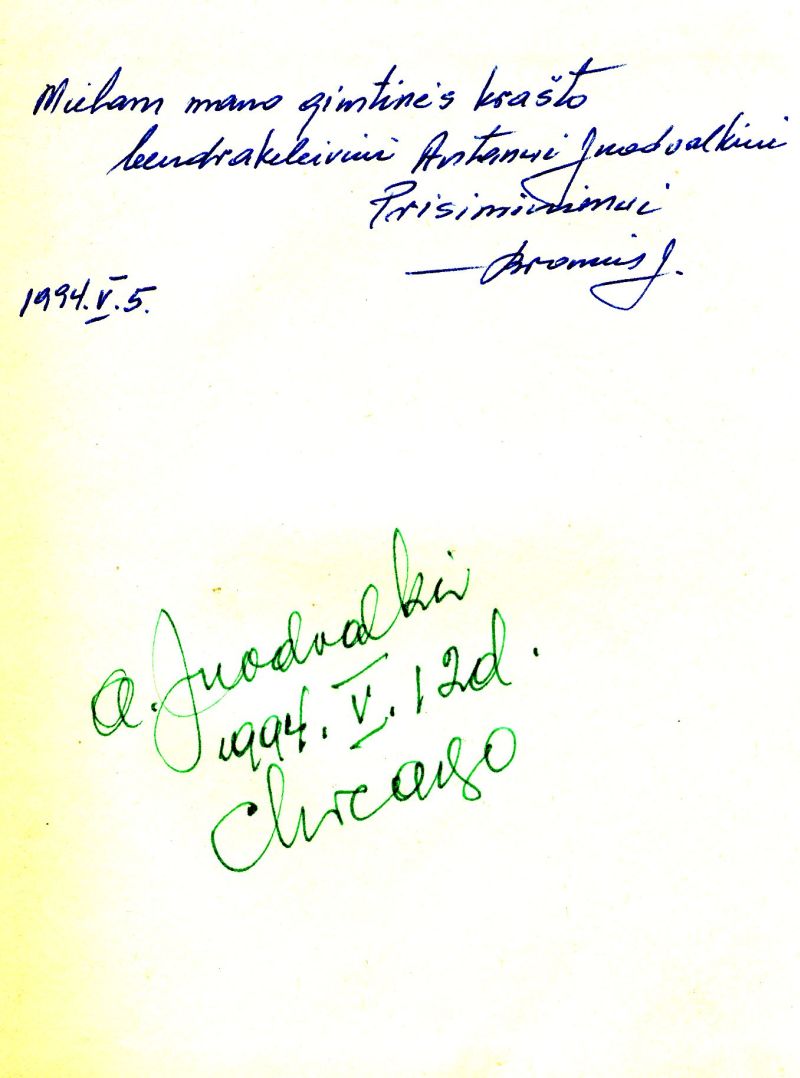 Mielam mano gimtinės krašto
bendrakeleiviui Antanui Juodvalkiui
Prisiminimui
— Bronius J.
1994.V.5.
A. Juodvalkis
1994.V.12d.
Chicago